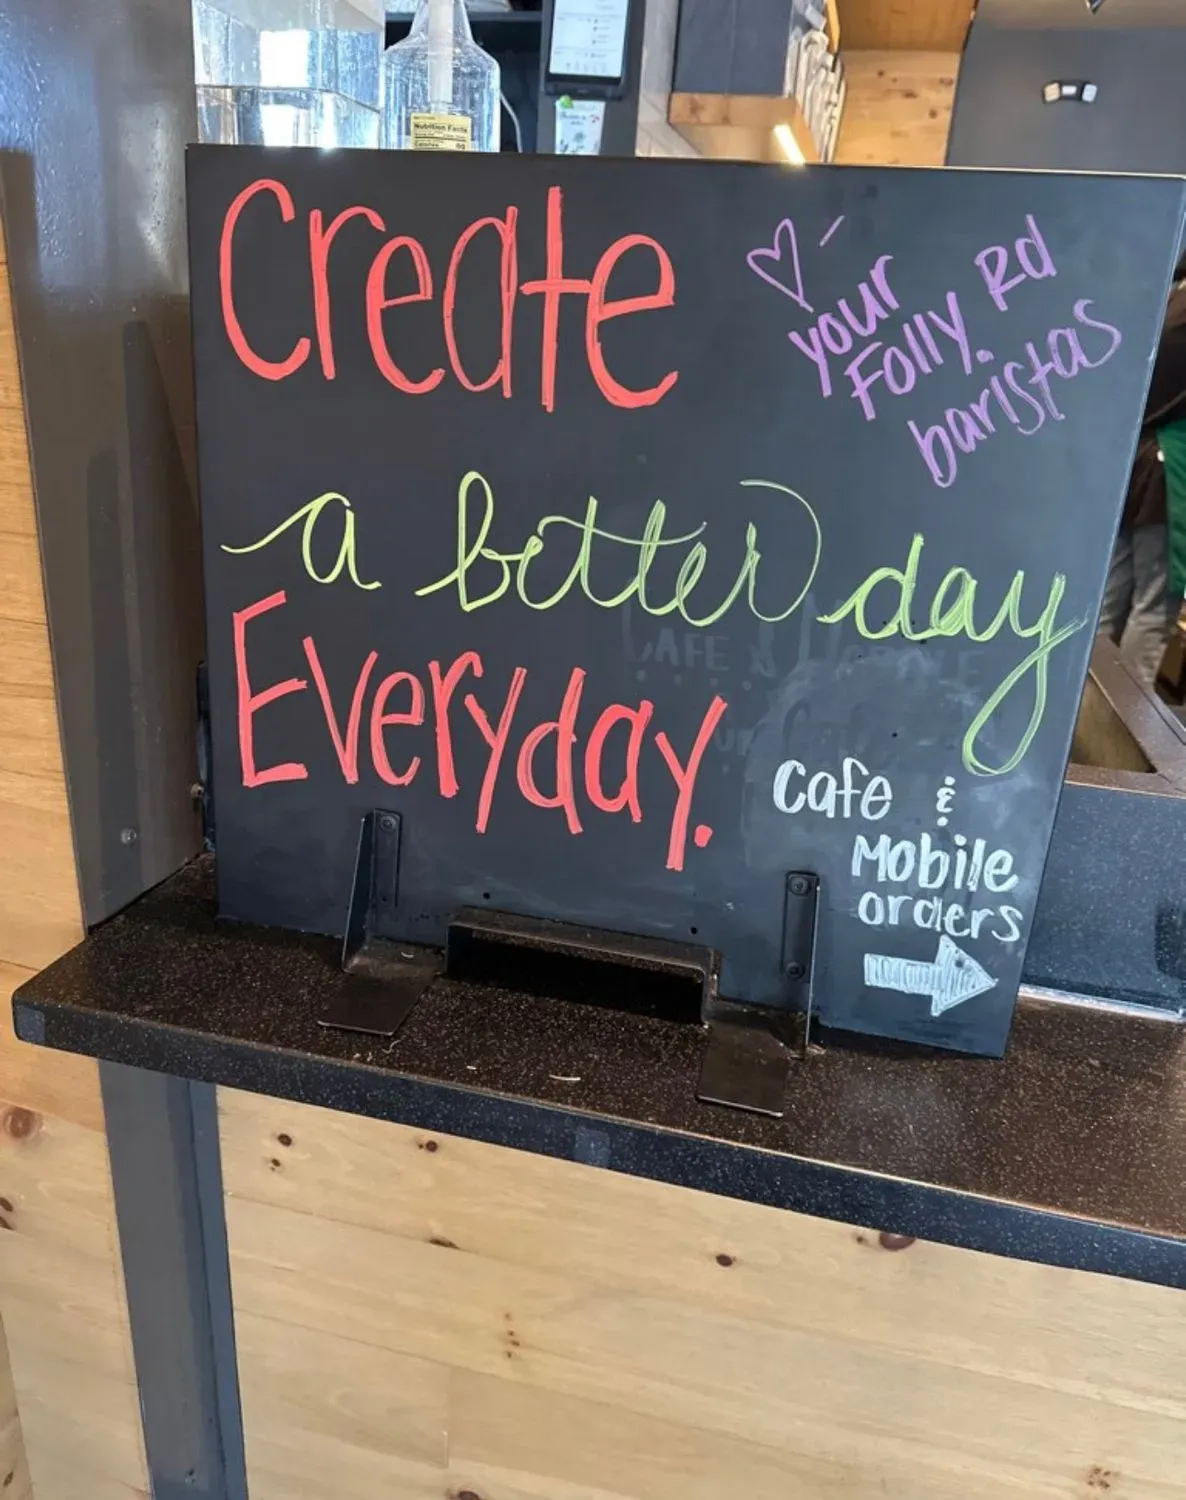 Create
a better day
Everyday.
♡ -
your
Folly Rd.
baristas
Cafe &
Mobile
orders
CAFE & MOBILE
Nutrition Facts
Calories